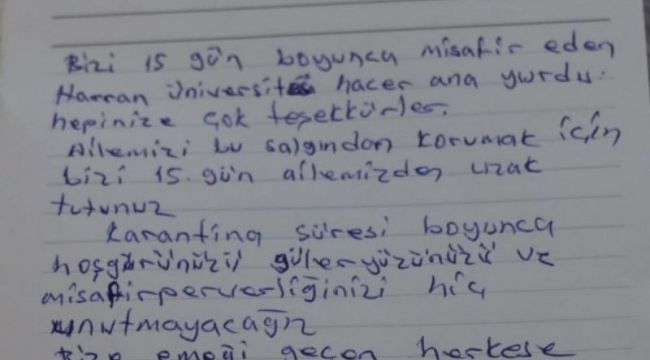 Bizi 15 gün boyunca misafir eden
Harran üniversitesi hacer ana yurdu.
hepinize çok teşekkürler.
Ailemizi bu salgından korumak için
bizi 15.gün ailemizden uzak
tutunuz
karantina süresi boyunca
hoşgörünüzü güleryüzünüzü ve
misafirperverliğinizi hiç
unutmayacağız
Bize emeği geçen herkese